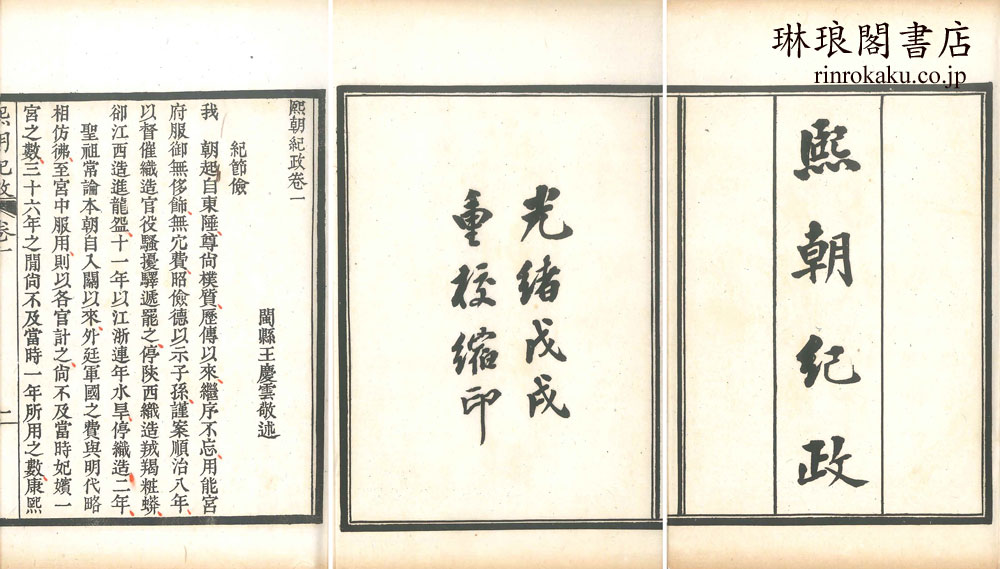 琳琅閣書店
rinrokaku.co.jp
熙朝紀政
光緒戊戌
重校縮印
熙朝紀政卷一
閩縣王慶雲敬述
紀節儉
我　朝起自東陲尊尚樸質歷傳以來繼序不忘用能宮
府服御無侈飾無宂費昭儉德以示子孫謹案順治八年
以督催織造官役騷擾驛遞罷之停陝西織造羢羯粧蟒
卻江西造進龍盌十一年以江浙連年水旱停織造二年
聖祖常論本朝自入關以來外廷軍國之費與明代略
相仿彿至宮中服用則以各官計之尚不及當時妃嬪一
宮之數三十六年之閒尚不及當時一年所用之數康熙
熙朝紀政 卷一 一